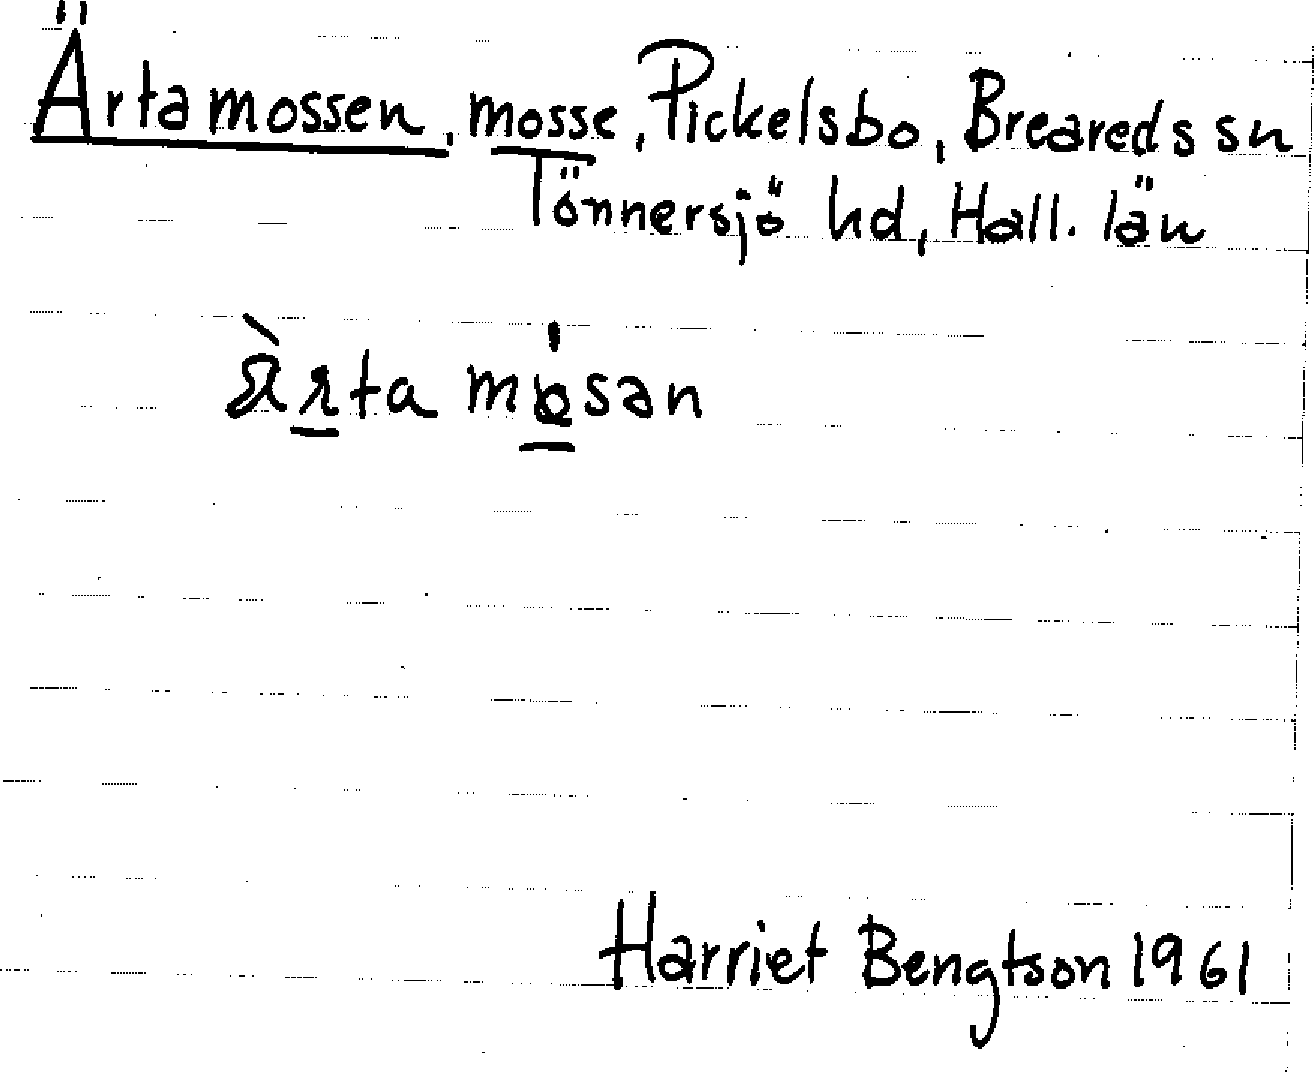 Ärtamossen, mosse, Pickelsbo, Breareds sn
Tönnersjö hd, Hall. län
ärta mosan
Harriet Bengtson 1961